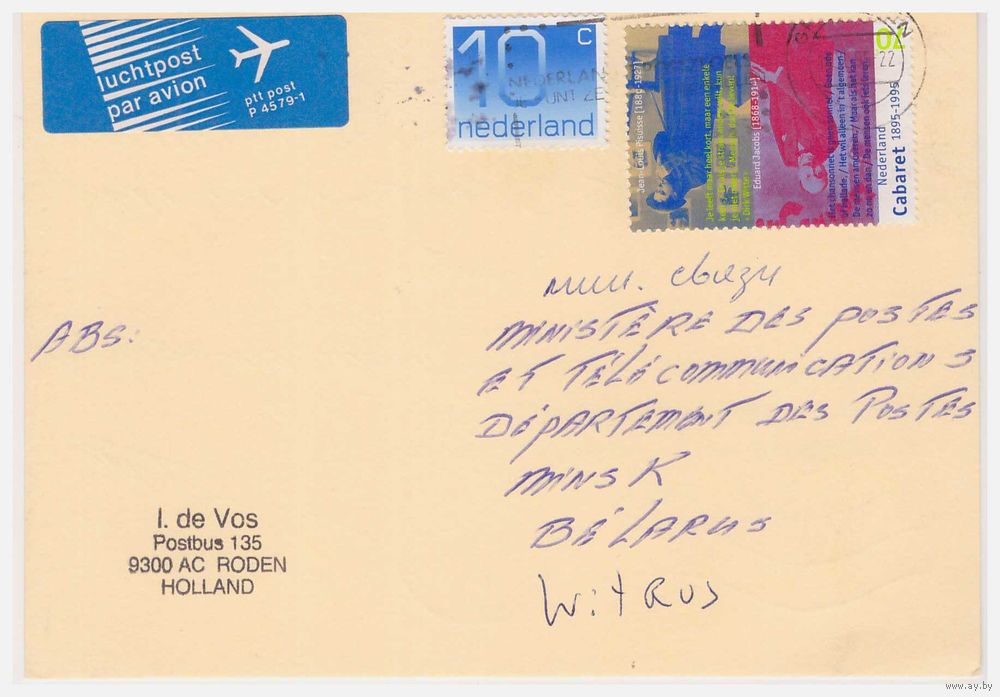 luchtpost
par avion
ptt post
P 4579-1
10 C
nederland
NEDERLAN
UNT ZE
Jean-Louis Pisuisse [1880-1927]
Eduard Jacobs [1868-1914]
Nederland
Cabaret 1895-1995
22
мин. связи
MINISTÈRE DES POSTES
ET TÉLÉCOMMUNICATIONS
DÉPARTEMENT DES POSTES
MINSK
BÉLARUS
WitRUS
ABS:
I. de Vos
Postbus 135
9300 AC RODEN
HOLLAND
www.ay.by